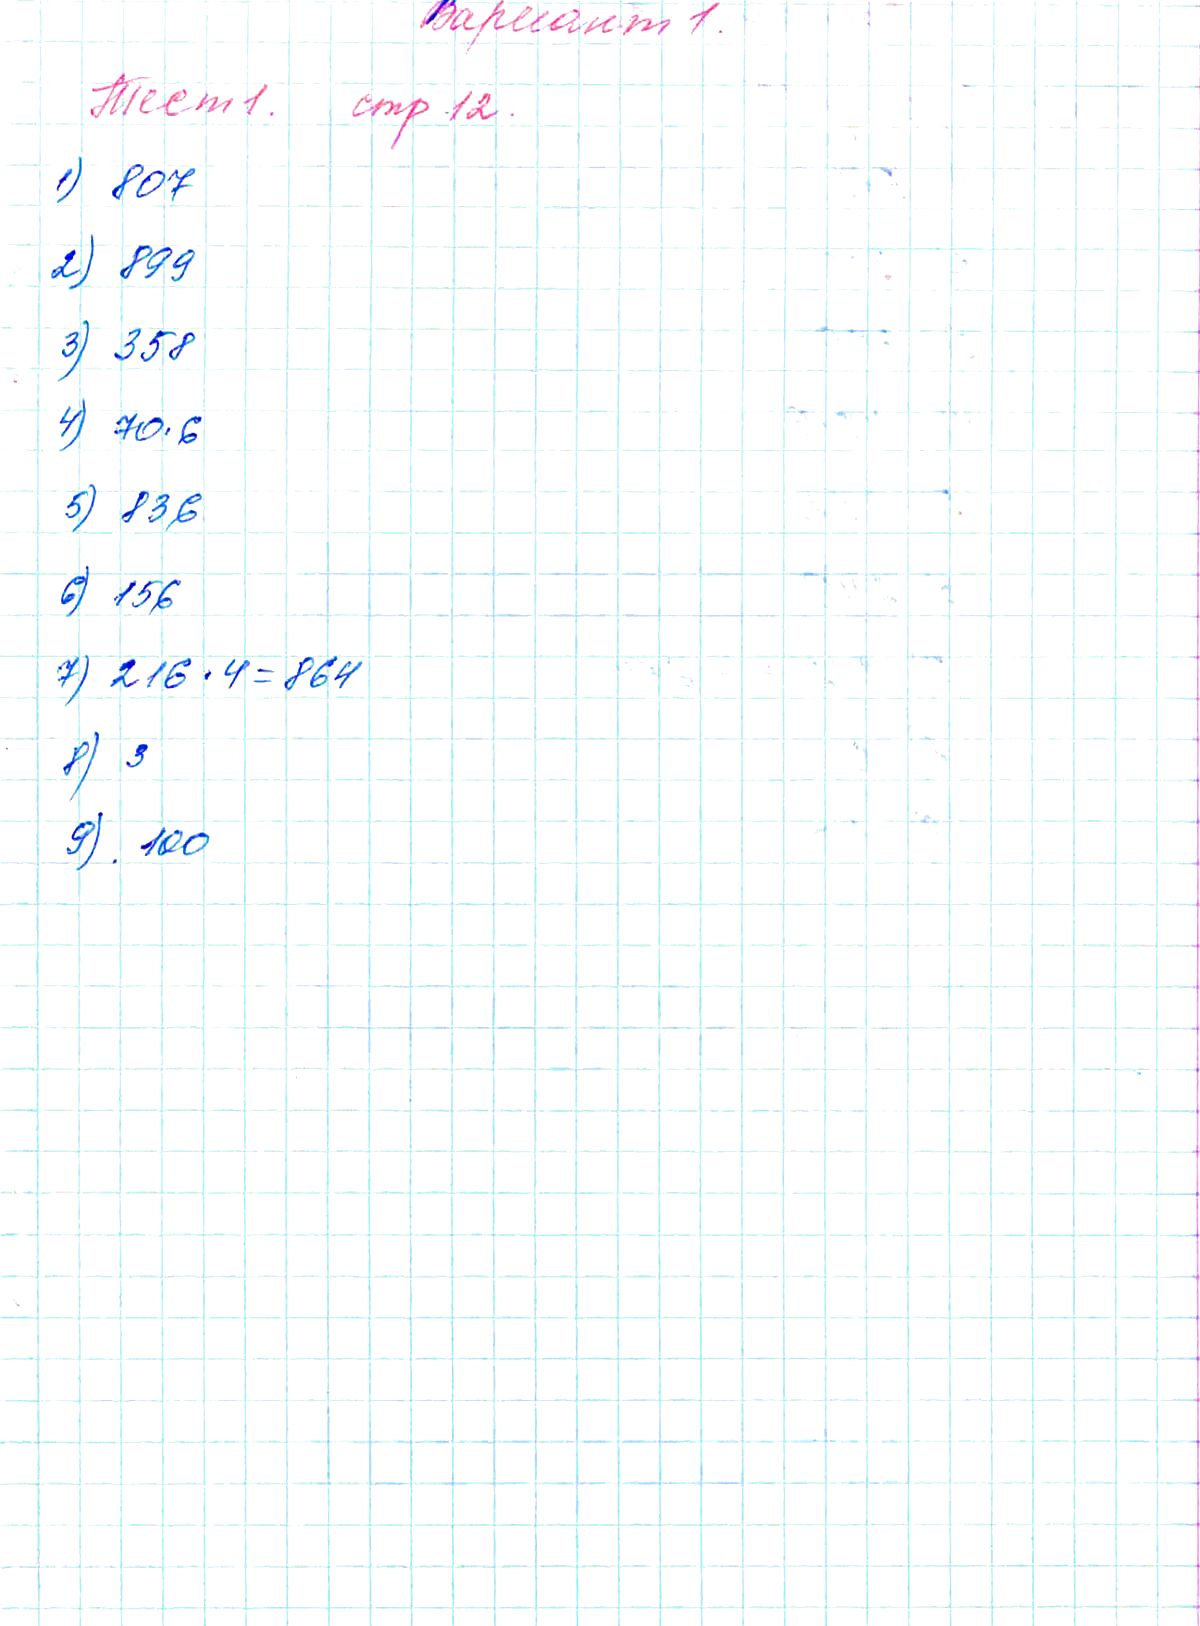 Вариант 1.
Тест 1. стр 12.
1) 807
2) 899
3) 358
4) 70·6
5) 836
6) 156
7) 216·4=864
8) 3
9). 100